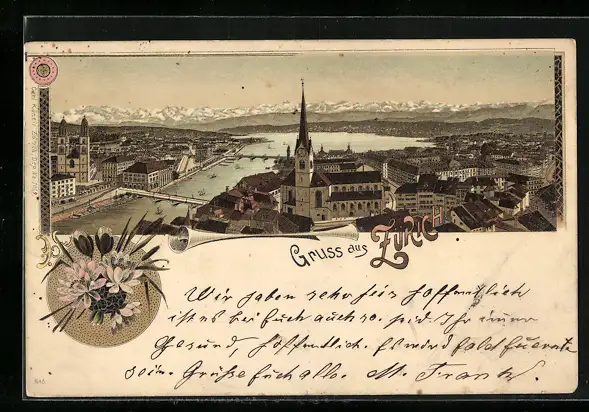 Gruss aus Zürich
Wir haben sehr fein hoffentlich
ist es bei Euch auch so. sid. Ihr immer
Gesund, hoffentlich. Es wird bald
sein. Grüsse Euch alle. M. Frank.